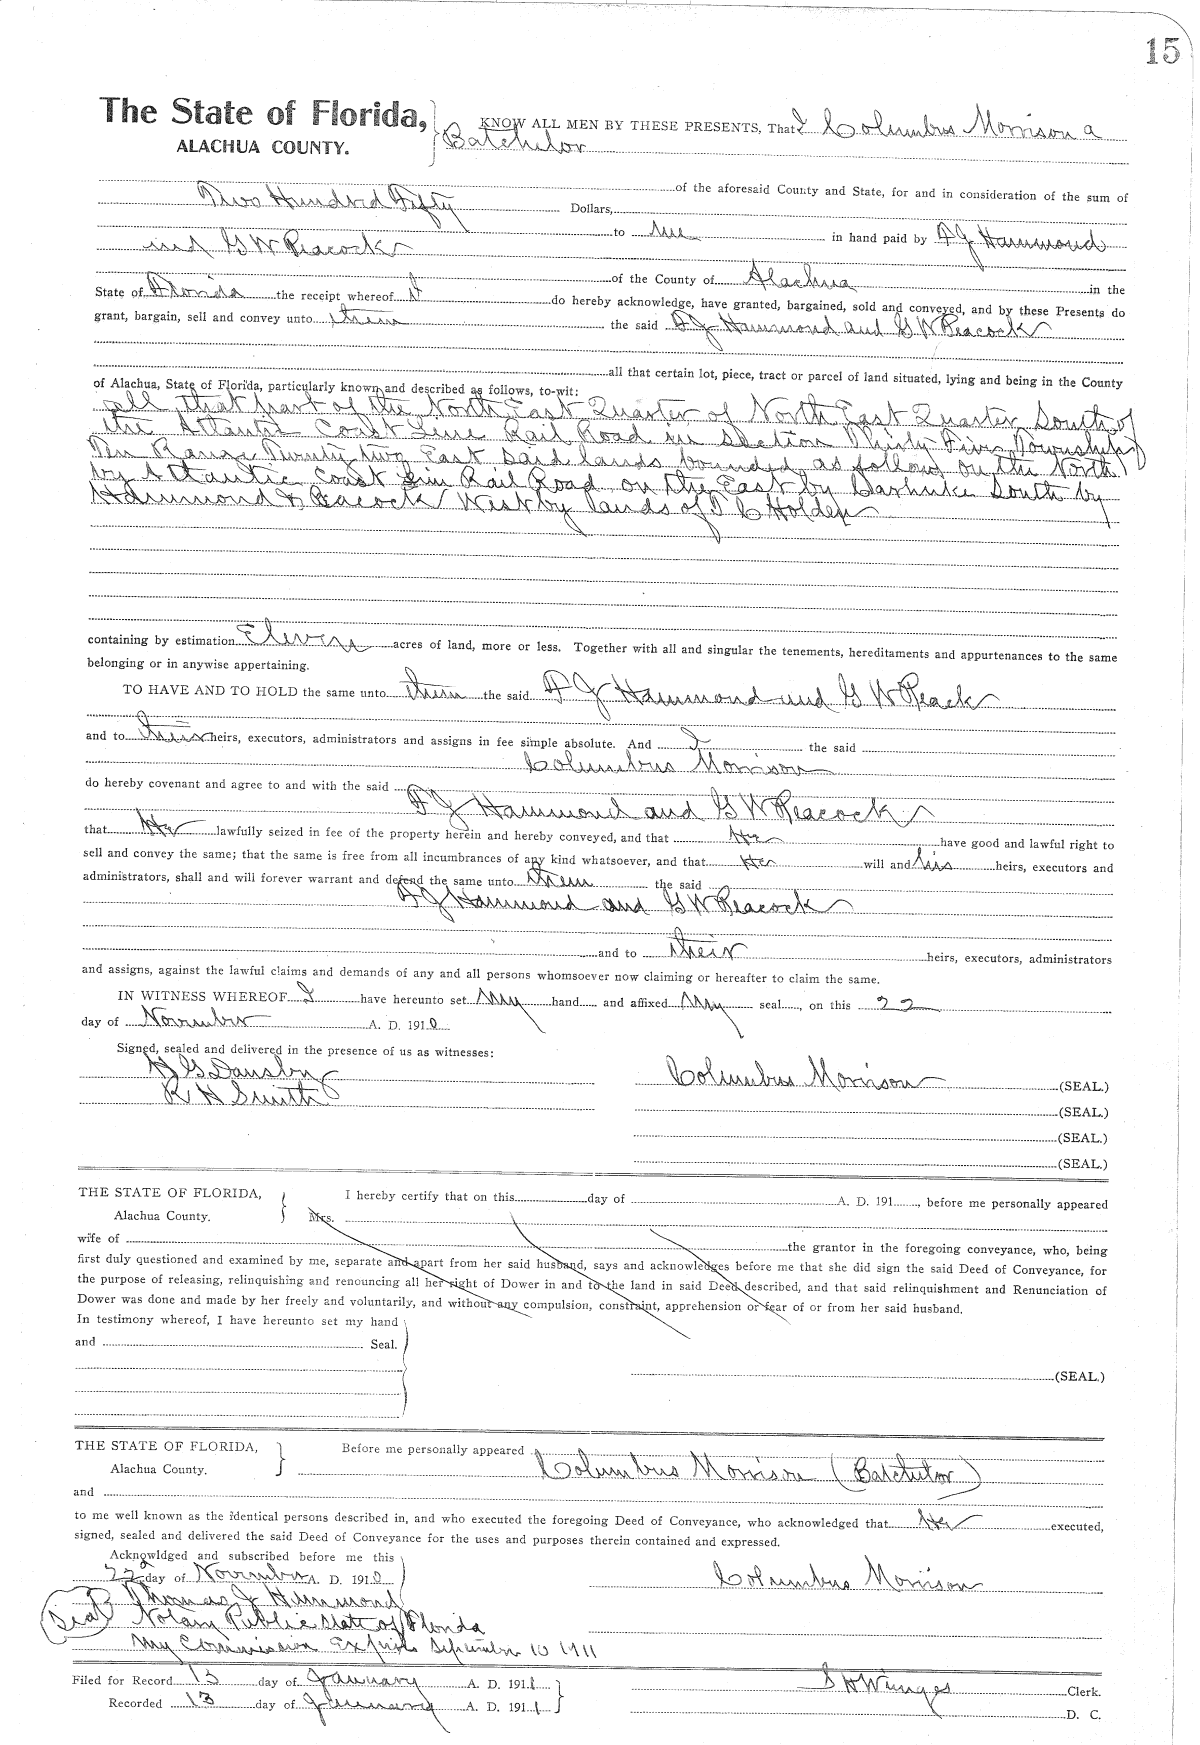 15
The State of Florida,
ALACHUA COUNTY.
KNOW ALL MEN BY THESE PRESENTS, That I Columbus Morrison a
Batchelor
of the aforesaid County and State, for and in consideration of the sum of
Two Hundred Fifty Dollars,
to me in hand paid by
Hammond
and G W Peacock
of the County of Alachua in the
State of Florida the receipt whereof do hereby acknowledge, have granted, bargained, sold and conveyed, and by these Presents do
grant, bargain, sell and convey unto them the said J Hammond and G W Peacock
all that certain lot, piece, tract or parcel of land situated, lying and being in the County
of Alachua, State of Florida, particularly known and described as follows, to-wit:
all that part of the North East Quarter of North East Quarter South of
the Atlantic Coast Line Rail Road in Section Thirty Five Township
Ten Range Twenty two East said lands bounded as follow on the North
by Atlantic Coast Line Rail Road on the East by South by
Hammond & Peacock West by lands of C Holden
containing by estimation Eleven acres of land, more or less. Together with all and singular the tenements, hereditaments and appurtenances to the same
belonging or in anywise appertaining.
TO HAVE AND TO HOLD the same unto them the said J Hammond and G W Peack
and to their heirs, executors, administrators and assigns in fee simple absolute. And I the said
Columbus Morrison
do hereby covenant and agree to and with the said
J Hammond and G W Peacock
that He lawfully seized in fee of the property herein and hereby conveyed, and that He have good and lawful right to
sell and convey the same; that the same is free from all incumbrances of any kind whatsoever, and that He will and his heirs, executors and
administrators, shall and will forever warrant and defend the same unto them the said
J Hammond and G W Peacock
and to their heirs, executors, administrators
and assigns, against the lawful claims and demands of any and all persons whomsoever now claiming or hereafter to claim the same.
IN WITNESS WHEREOF I have hereunto set My hand and affixed My seal, on this 22
day of November A. D. 1910
Signed, sealed and delivered in the presence of us as witnesses:
G Dansby
R H Smith
Columbus Morrison (SEAL.)
(SEAL.)
(SEAL.)
(SEAL.)
THE STATE OF FLORIDA,
Alachua County.
I hereby certify that on this day of A. D. 191, before me personally appeared
Mrs.
wife of the grantor in the foregoing conveyance, who, being
first duly questioned and examined by me, separate and apart from her said husband, says and acknowledges before me that she did sign the said Deed of Conveyance, for
the purpose of releasing, relinquishing and renouncing all her right of Dower in and to the land in said Deed described, and that said relinquishment and Renunciation of
Dower was done and made by her freely and voluntarily, and without any compulsion, constraint, apprehension or fear of or from her said husband.
In testimony whereof, I have hereunto set my hand
and Seal.
(SEAL.)
THE STATE OF FLORIDA,
Alachua County.
Before me personally appeared
Columbus Morrison (Batchelor)
and
to me well known as the identical persons described in, and who executed the foregoing Deed of Conveyance, who acknowledged that He executed,
signed, sealed and delivered the said Deed of Conveyance for the uses and purposes therein contained and expressed.
Acknowldged and subscribed before me this
22 day of November A. D. 1910
Columbus Morrison
Thomas J Hammond
Seal
Notary Public State of Florida
My Commission Expires September 10 1911
Filed for Record 13 day of January A. D. 1911
S H Wienges Clerk.
Recorded 13 day of January A. D. 1911
D. C.